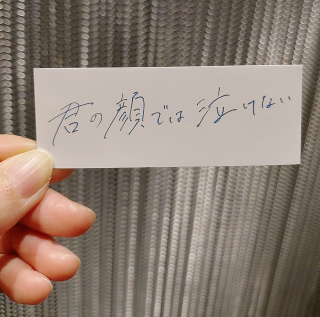 君の顔では泣けない